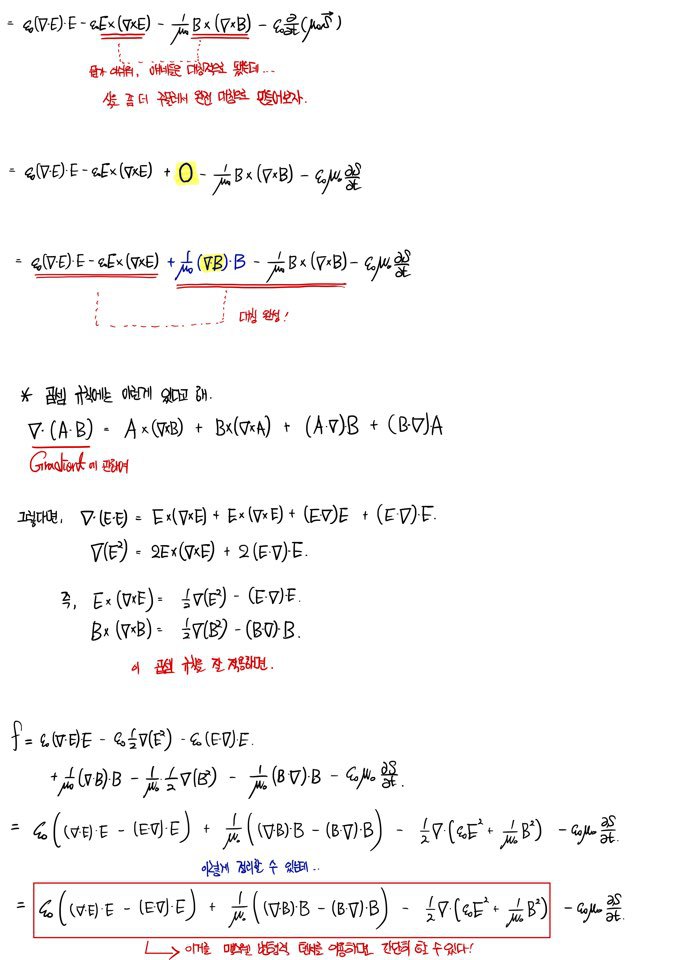 = ε₀(∇·E)·E - ε₀E×(∇×E) - 1/μ₀ B×(∇×B) - ε₀ ∂/∂t(μ₀S⃗)
뭔가 아쉬워, 얘네들은 대칭적으로 됐는데...
식을 좀 더 주물러서 완전 대칭으로 만들어보자.
= ε₀(∇·E)·E - ε₀E×(∇×E) + 0 - 1/μ₀ B×(∇×B) - ε₀μ₀ ∂S/∂t
= ε₀(∇·E)·E - ε₀E×(∇×E) + 1/μ₀ (∇·B)·B - 1/μ₀ B×(∇×B) - ε₀μ₀ ∂S/∂t
대칭 완성!
* 곱셈 규칙에는 이런게 있다고 해.
∇·(A·B) = A×(∇×B) + B×(∇×A) + (A·∇)B + (B·∇)A
Gradient에 관하여
그렇다면, ∇·(E·E) = E×(∇×E) + E×(∇×E) + (E·∇)E + (E·∇)·E.
∇(E²) = 2E×(∇×E) + 2(E·∇)·E.
즉, E×(∇×E) = 1/2 ∇(E²) - (E·∇)·E.
B×(∇×B) = 1/2 ∇(B²) - (B·∇)·B.
이 곱셈 규칙을 잘 적용하면.
f = ε₀(∇·E)E - ε₀ 1/2 ∇(E²) - ε₀(E·∇)·E.
+ 1/μ₀ (∇·B)·B - 1/μ₀ · 1/2 ∇(B²) - 1/μ₀ (B·∇)·B - ε₀μ₀ ∂S/∂t.
= ε₀((∇·E)·E - (E·∇)·E) + 1/μ₀ ((∇·B)·B - (B·∇)·B) - 1/2 ∇·(ε₀E² + 1/μ₀ B²) - ε₀μ₀ ∂S/∂t.
이렇게 정리할 수 있는데..
= ε₀((∇·E)·E - (E·∇)·E) + 1/μ₀ ((∇·B)·B - (B·∇)·B) - 1/2 ∇·(ε₀E² + 1/μ₀ B²) - ε₀μ₀ ∂S/∂t.
이거를 맥스웰 변형력 텐서를 이용하면 간단히 할 수 있다!